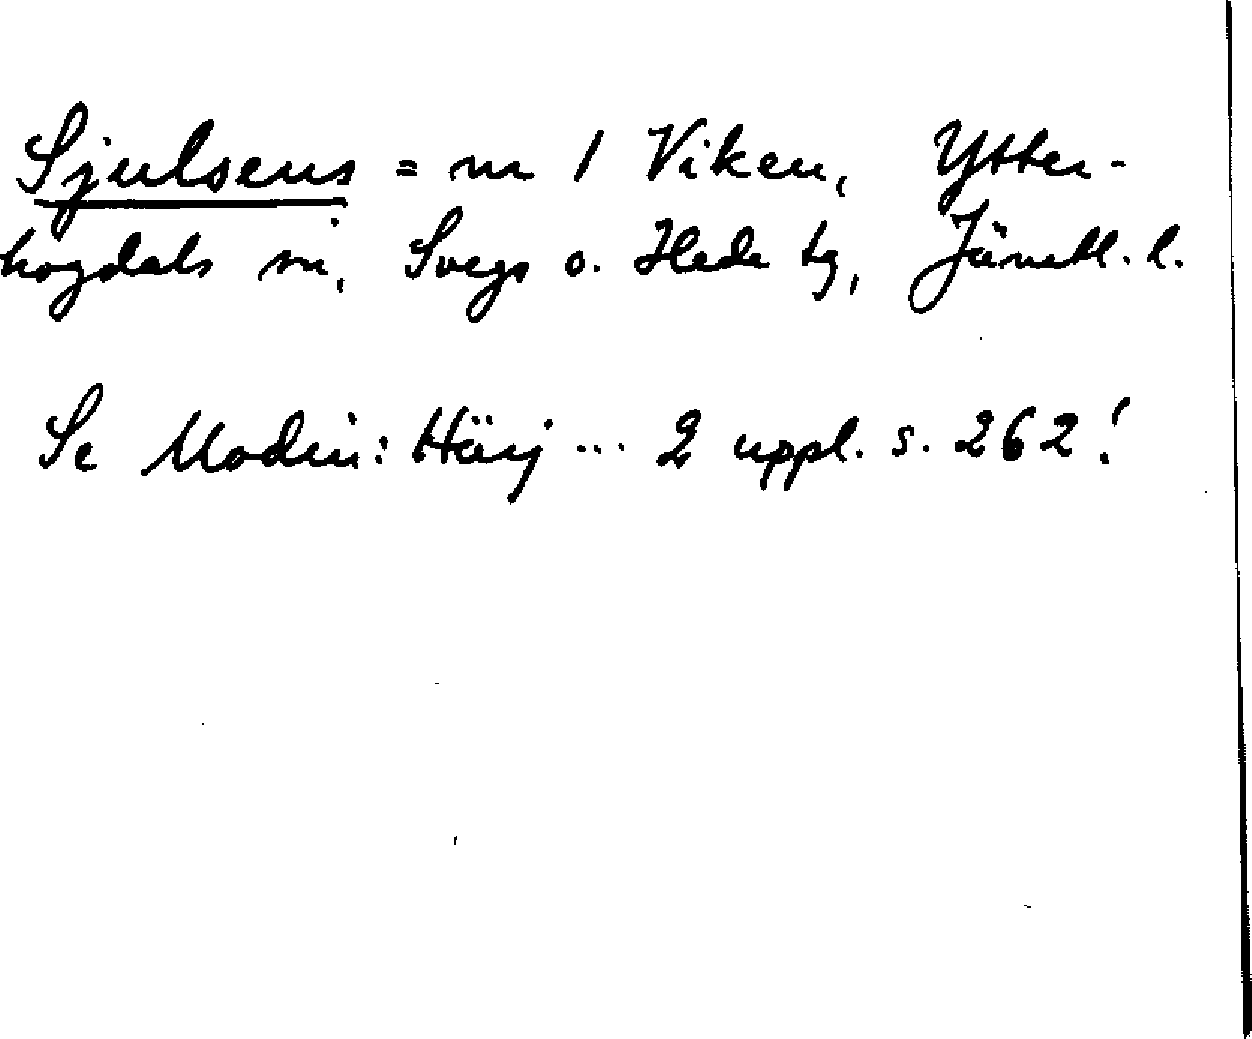 Sjulsens = nr 1 Viken, Ytter-
hogdals sn, Svegs o. Hede tg, Jämtl. l.
Se Modin: Härj ... 2 uppl. s. 262!